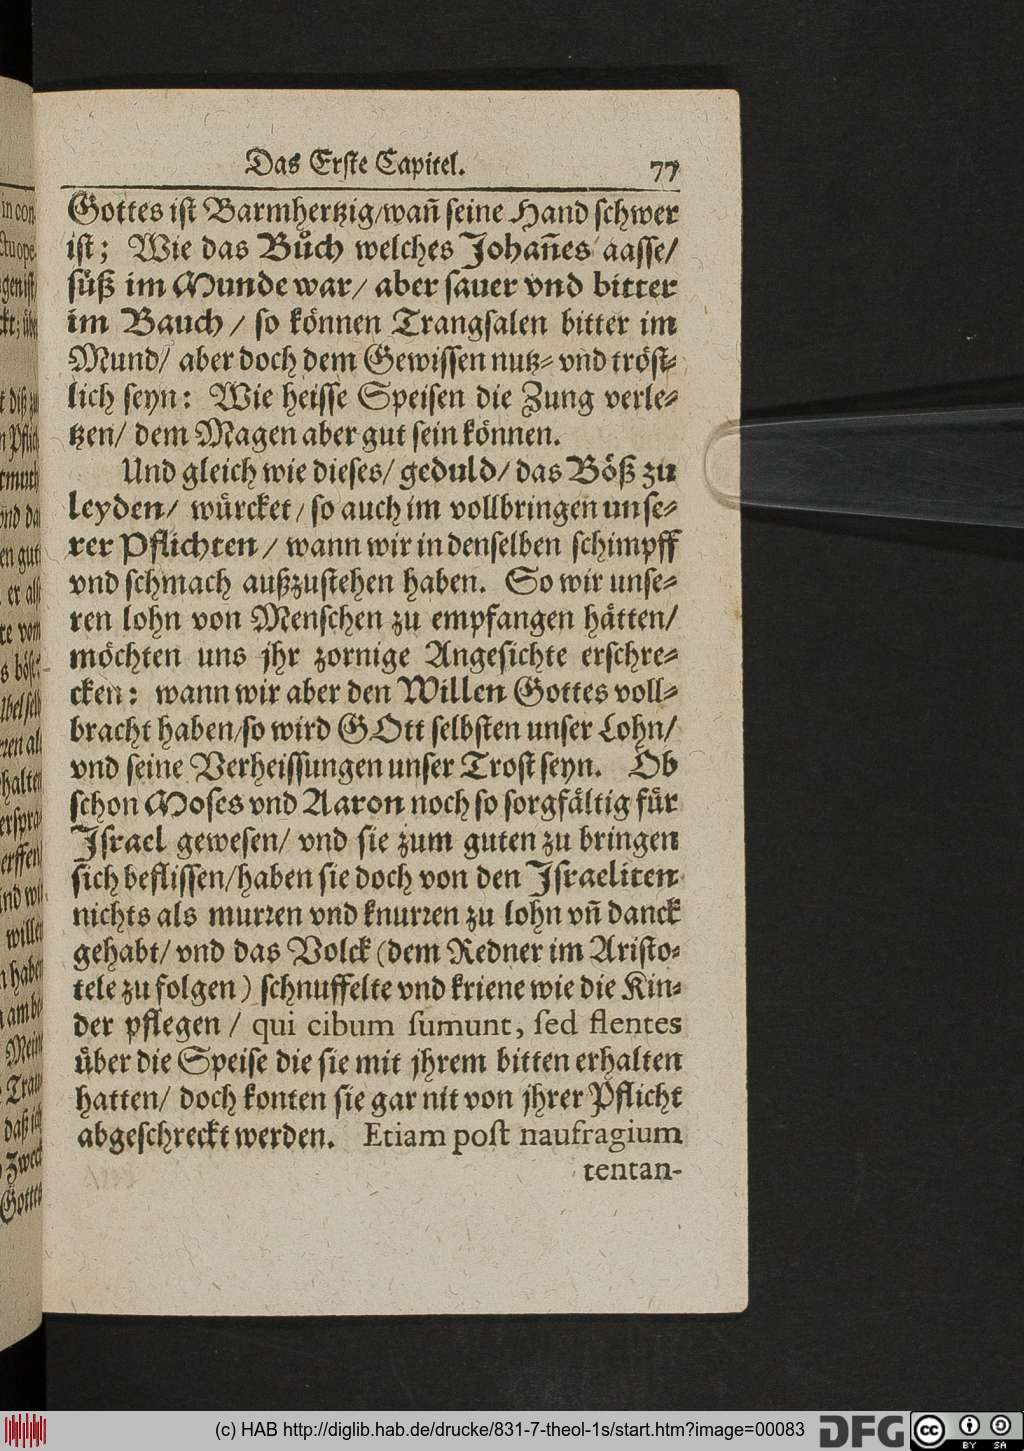 Das Erste Capitel. 77
Gottes ist Barmhertzig/wañ seine Hand schwer
ist; Wie das Bůch welches Johañes aasse/
süß im Munde war/ aber sauer vnd bitter
im Bauch / so können Trangsalen bitter im
Mund/ aber doch dem Gewissen nutz- vnd tröst-
lich seyn: Wie heisse Speisen die Zung verle-
tzen/ dem Magen aber gut sein können.
Und gleich wie dieses/ geduld/ das Böß zu
leyden/ würcket/ so auch im vollbringen unse-
rer Pflichten / wann wir in denselben schimpff
vnd schmach außzustehen haben. So wir unse-
ren lohn von Menschen zu empfangen hätten/
möchten uns jhr zornige Angesichte erschre-
cken: wann wir aber den Willen Gottes voll-
bracht haben/so wird GOtt selbsten unser Lohn/
vnd seine Verheissungen unser Trost seyn. Ob
schon Moses vnd Aaron noch so sorgfältig für
Israel gewesen/ vnd sie zum guten zu bringen
sich beflissen/haben sie doch von den Israeliten
nichts als murren vnd knurren zu lohn vñ danck
gehabt/ vnd das Volck (dem Redner im Aristo-
tele zu folgen) schnuffelte vnd kriene wie die Kin-
der pflegen / qui cibum sumunt, sed flentes
über die Speise die sie mit jhrem bitten erhalten
hatten/ doch konten sie gar nit von jhrer Pflicht
abgeschreckt werden. Etiam post naufragium
tentan-
(c) HAB http://diglib.hab.de/drucke/831-7-theol-1s/start.htm?image=00083
DFG
cc BY SA